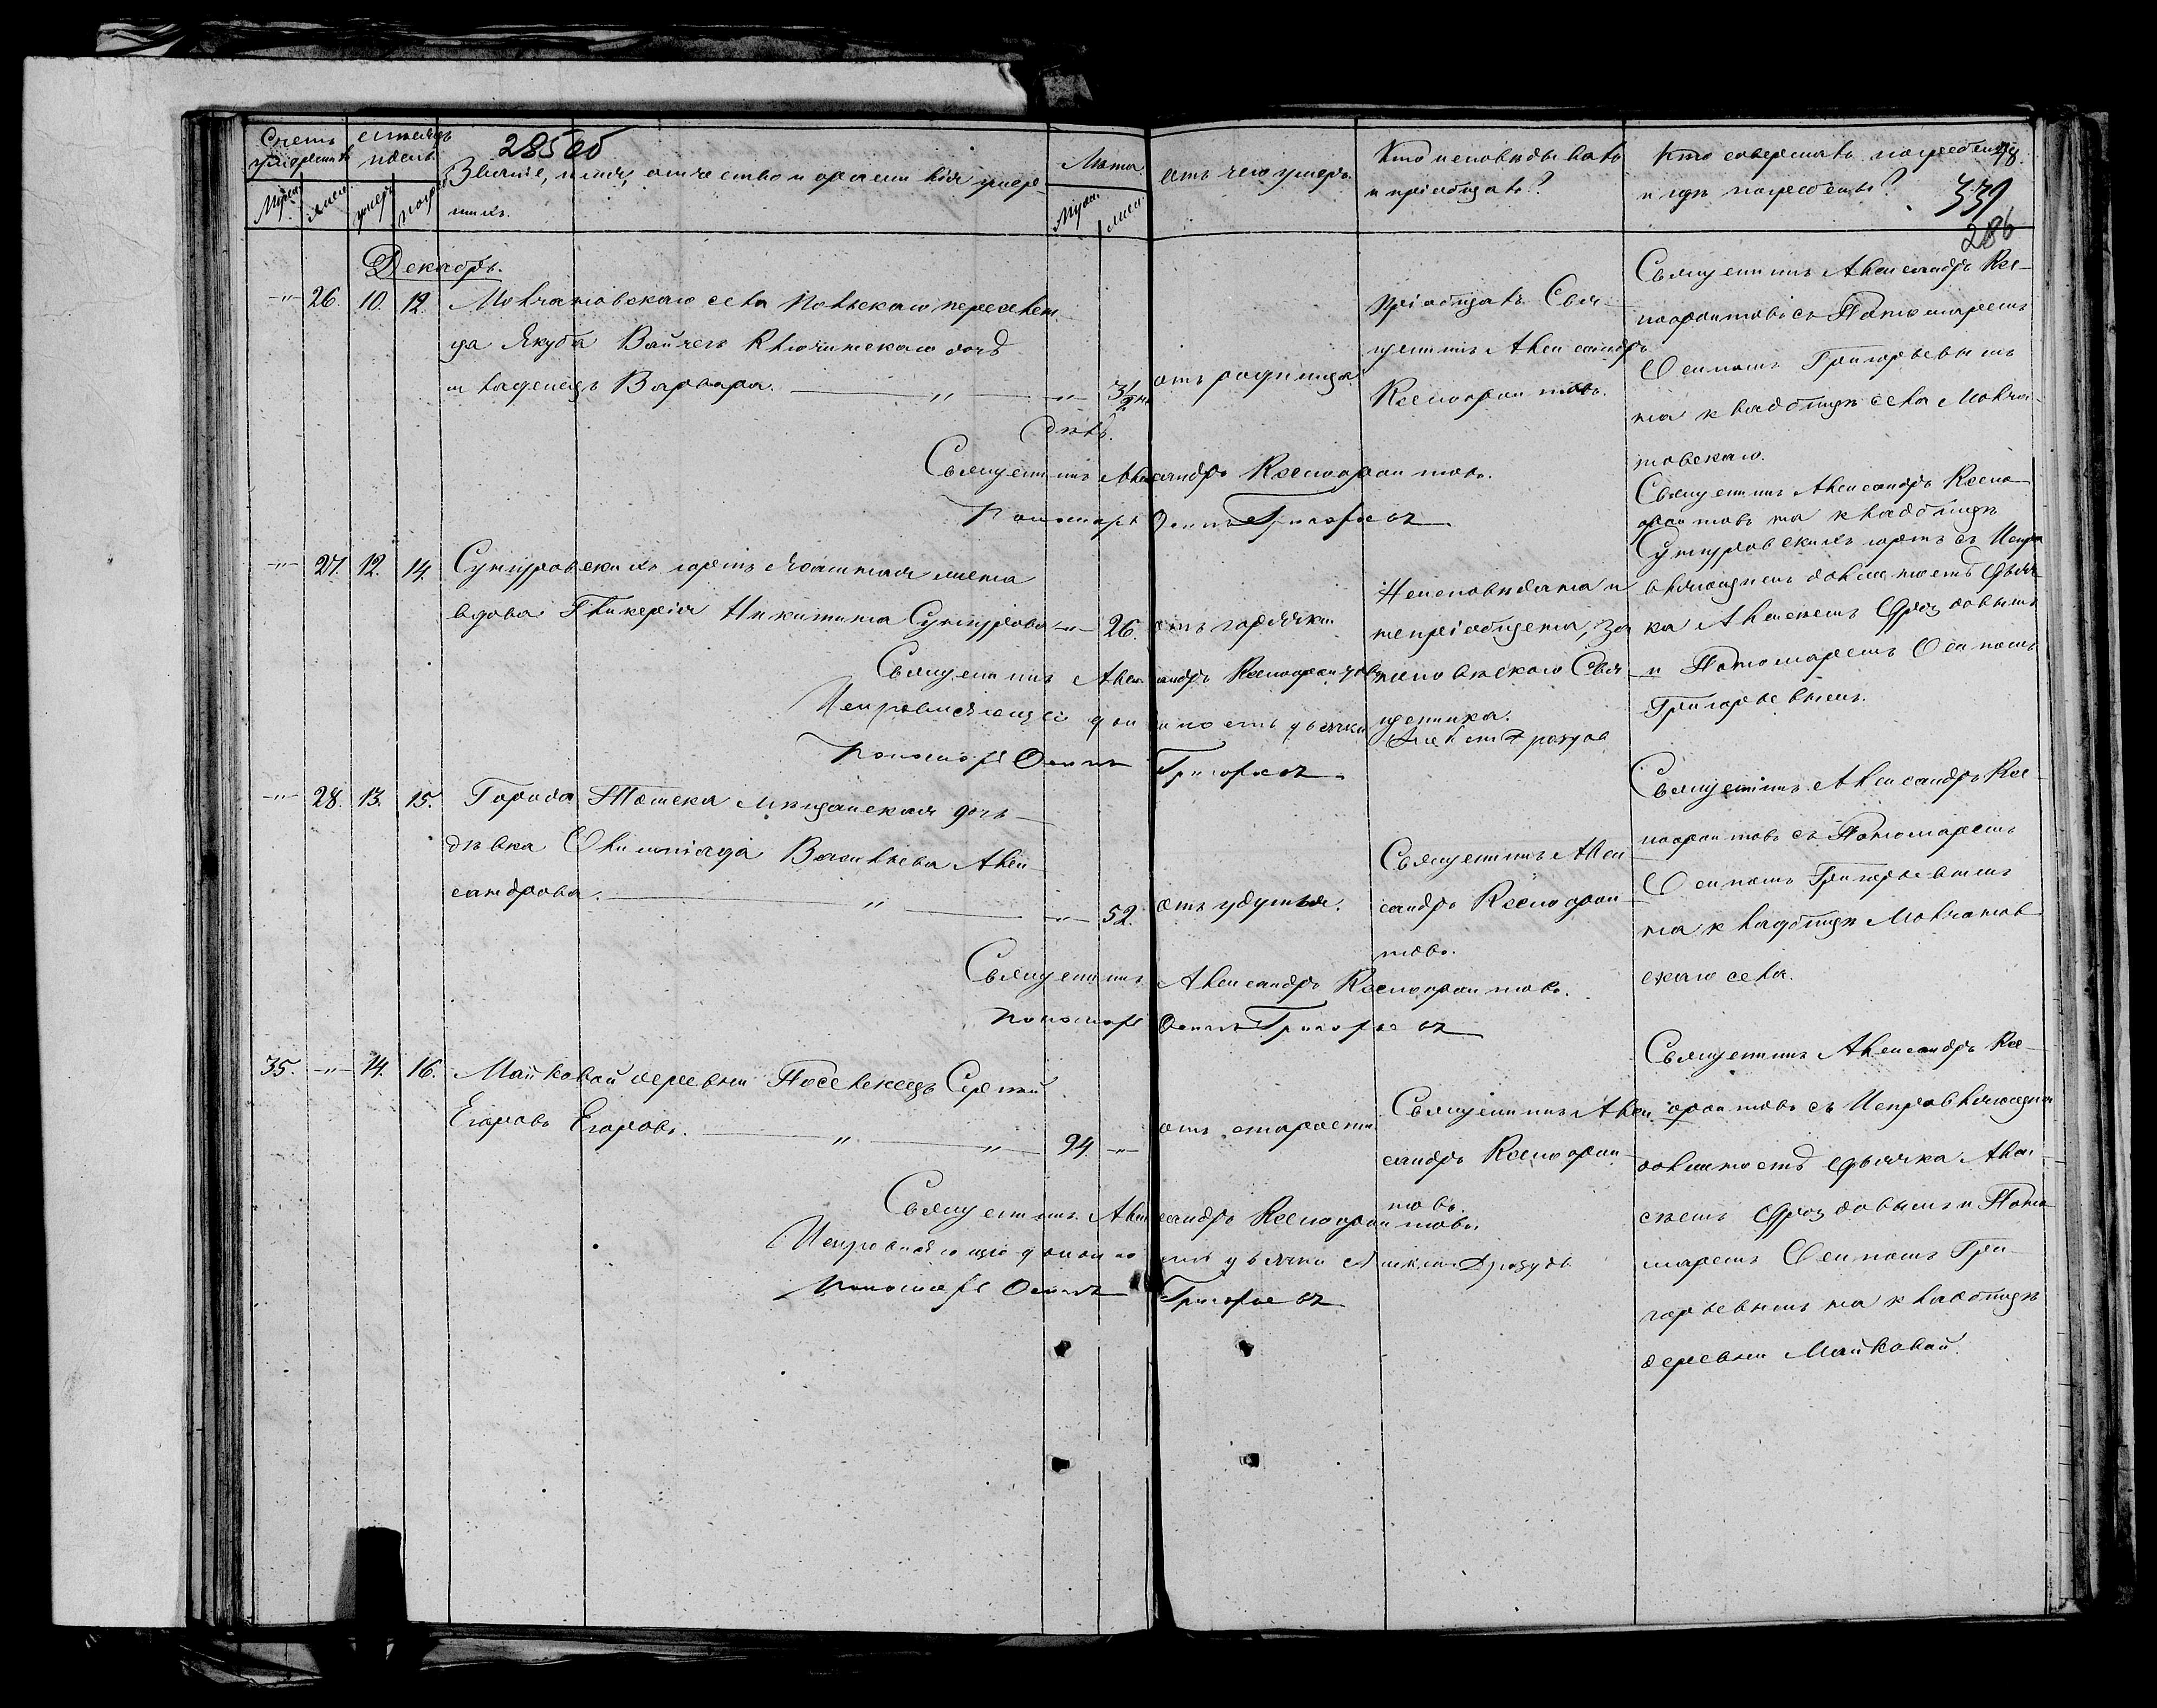 Счетъ умершихъ
Мѣсяцъ и день
285об
Званіе, имя, отчество и фамилія умер-
шихъ.
Лѣта
отъ чего умеръ
Кто исповѣдывалъ
и пріобщалъ?
Кто совершалъ погребеніе
и гдѣ погребенъ?
339
286
Муж.
жен.
умер.
погр.
Муж.
жен.
Декабрь.
-"- 26. 10. 12.
Молчановскаго села Польскаго переселен-
ца Якуба Ключинскаго дочь
младенецъ Варвара. " -"- 3½
Днѣ.
отъ родимца
Пріобщалъ Свя-
щенникъ Александръ
Ксенофонтовъ.
Священникъ Александръ Ксе-
нофонтовъ съ Пономаремъ
Осипомъ Григорьевымъ
на кладбищѣ села Молча-
новскаго.
Священникъ Александръ Ксенофонтовъ.
Пономарь Осипъ Григорьевъ
-"- 27. 12. 14.
вдова Гликерія Никитина -"- 26.
отъ горячки
Неисповѣдана и
непріобщена, за
Свя-
щенника.
Священникъ Александръ Ксено-
фонтовъ на кладбищѣ
юртъ съ Испра-
вляющимъ должность Дьяч-
ка Алексѣемъ Дроздовымъ
и Пономаремъ Осипомъ
Григорьевымъ.
Священникъ Александръ Ксенофонтовъ
Исправляющій должность дьячка Алексѣй Дроздов
Пономарь Осипъ Григорьевъ
-"- 28. 13. 15.
Города Томска мѣщанская дочь
дѣвка Олимпіада Васильева Алек-
сандрова. " -"- 52.
отъ удушья.
Священникъ Алек-
сандръ Ксенофон-
товъ.
Священникъ Александръ Ксе-
нофонтовъ съ Пономаремъ
Осипомъ Григорьевымъ
на кладбищѣ Молчанов-
скаго села.
Священникъ Александръ Ксенофонтовъ.
Пономарь Осипъ Григорьевъ
35. -"- 14. 16.
Майковой деревни Посельщикъ Сергѣй
Егоровъ Егоровъ. " " 94 -"-
отъ старости.
Священникъ Алек-
сандръ Ксенофон-
товъ.
Священникъ Александръ Ксе-
фонтовъ съ Исправляющимъ
должность Дьячка Алек-
сѣемъ Дроздовымъ и Поно-
маремъ Осипомъ Гри-
горьевымъ на кладбищѣ
деревни Майковой.
Священникъ Александръ Ксенофонтовъ.
Исправляющій должность дьячка Алексѣй Дроздовъ
Пономарь Осипъ Григорьевъ